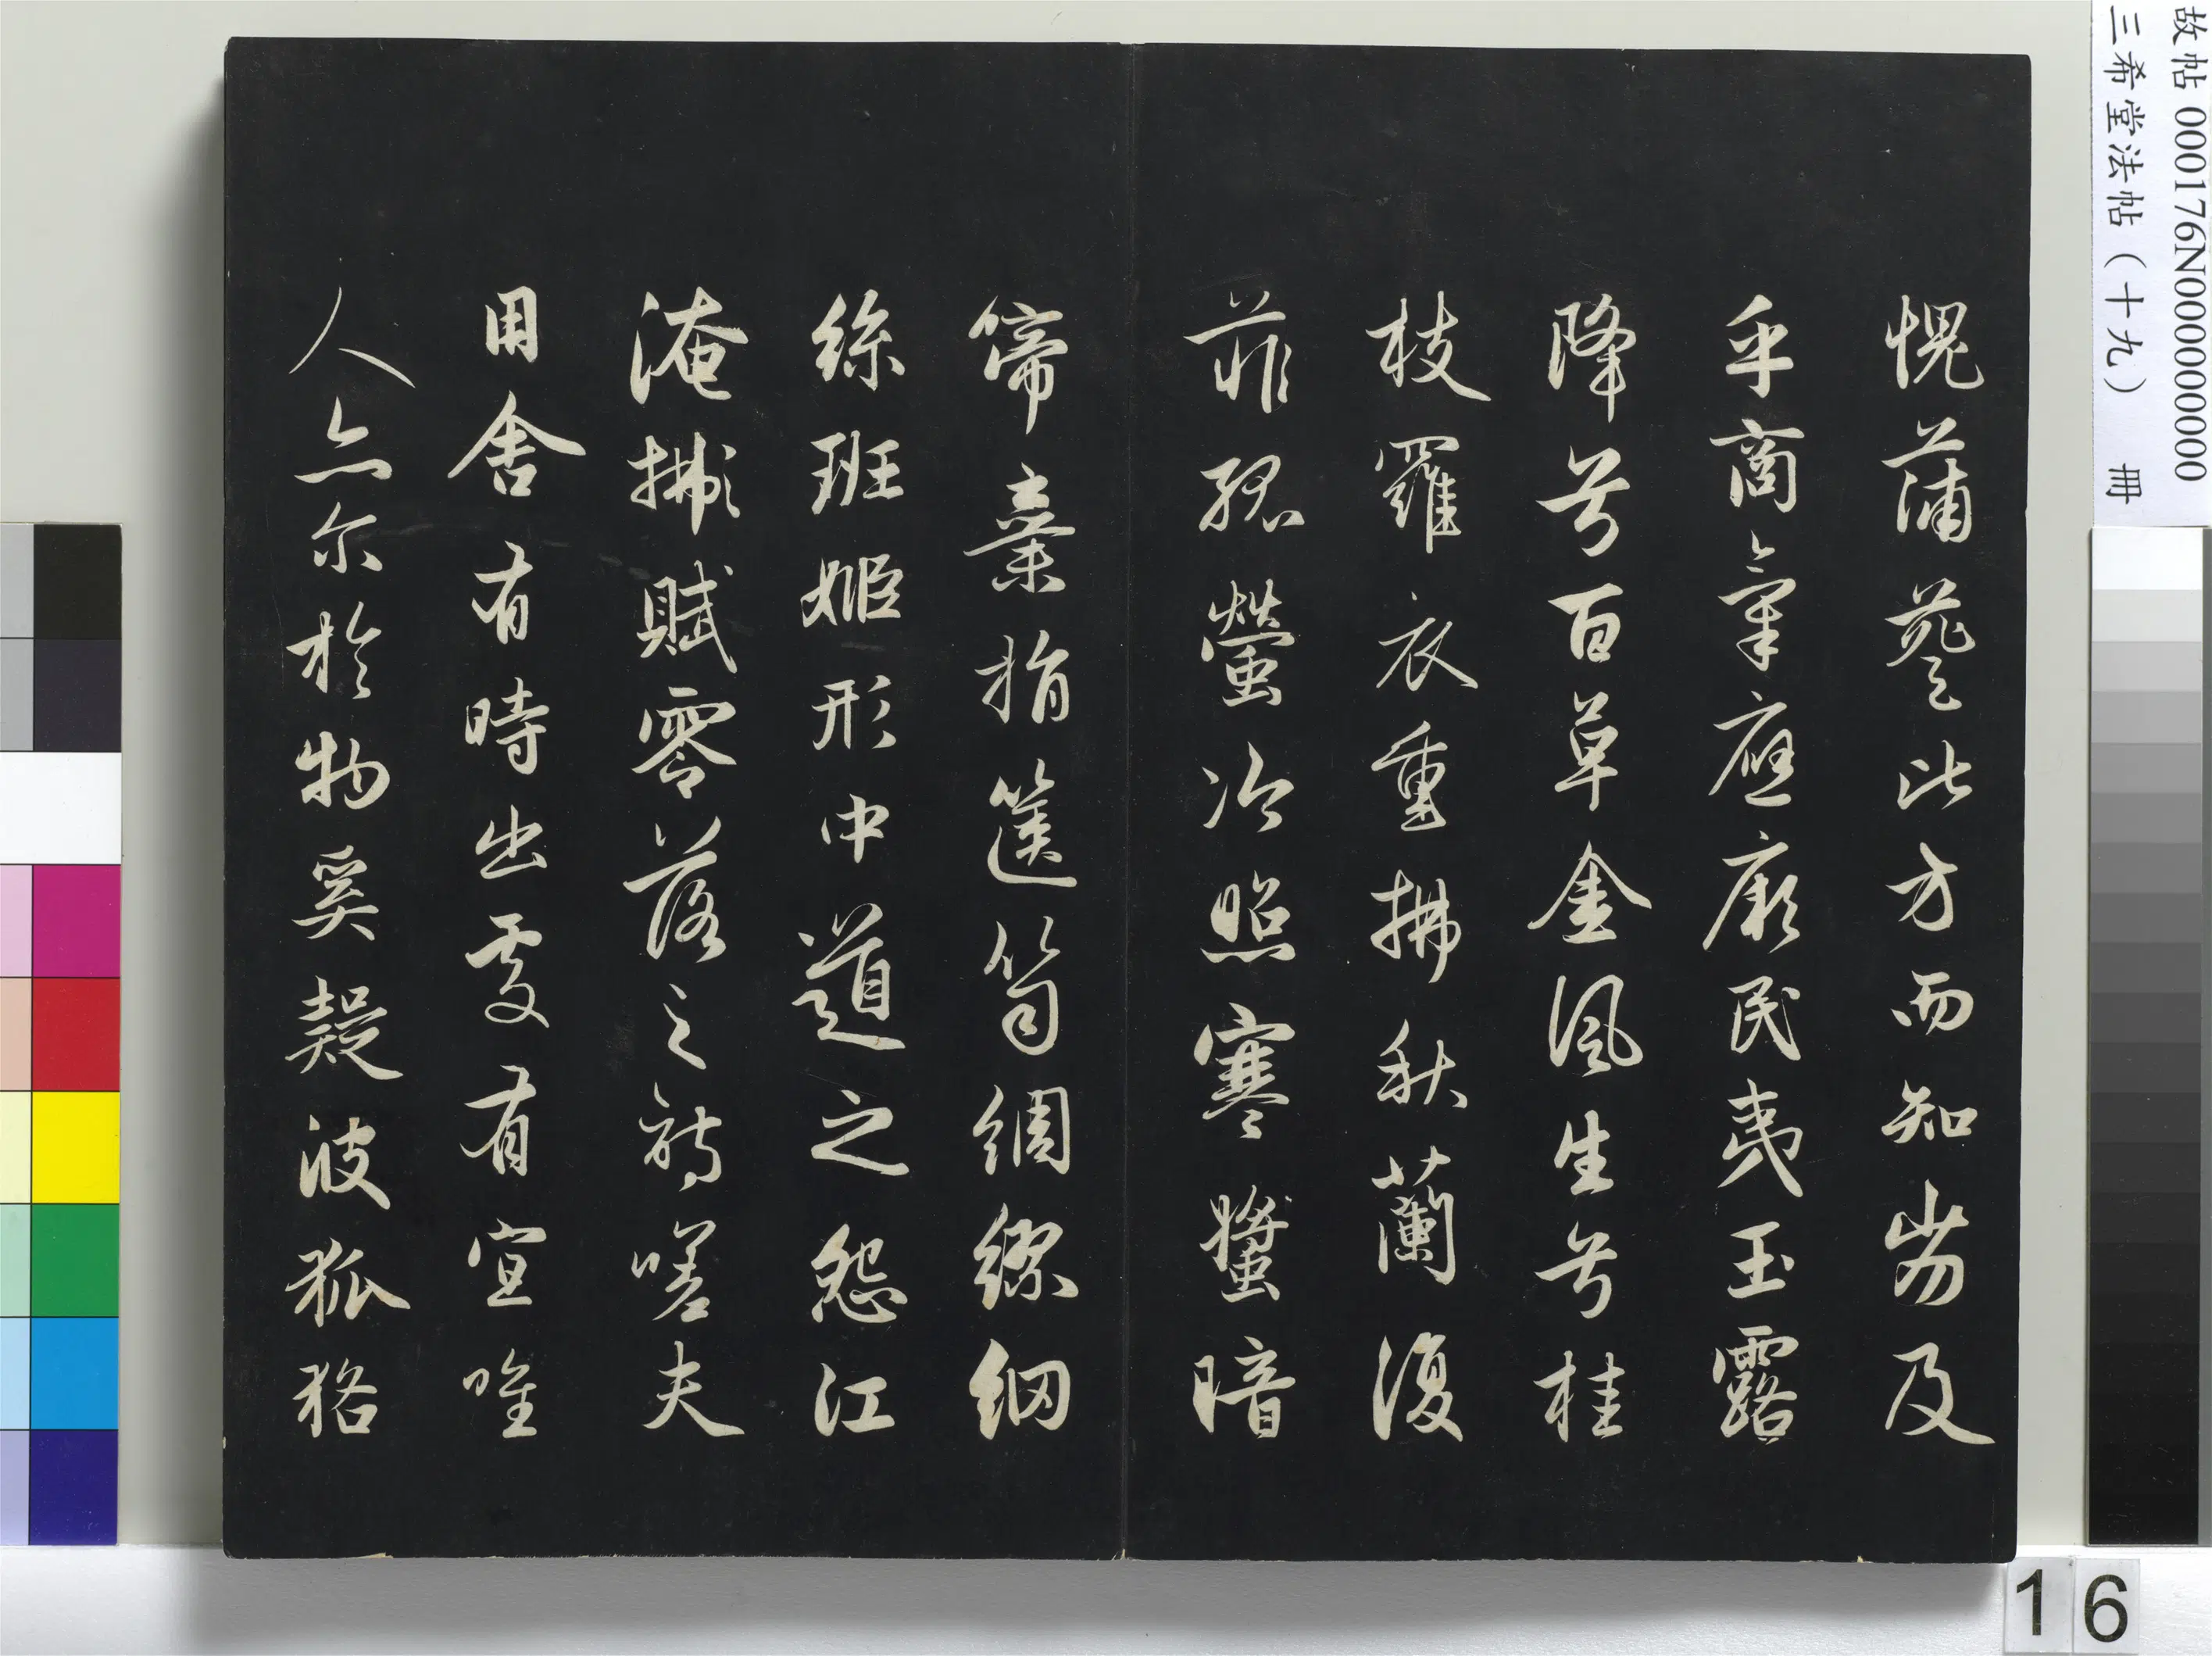 故帖 000176N000000000
三希堂法帖（十九） 冊
愧蒲葵比方而知劣及
乎商氣應厥民夷玉露
降兮百草金風生兮桂
枝羅衣重拂秋蘭復
菲孤螢冷照寒螿暗
啼棄捐篋笥綢繆網
絲班姬形中道之怨江
淹賦零落之詩嗟夫
用舍有時出處有宜唯
人亦尓於物奚疑彼狐狢
16